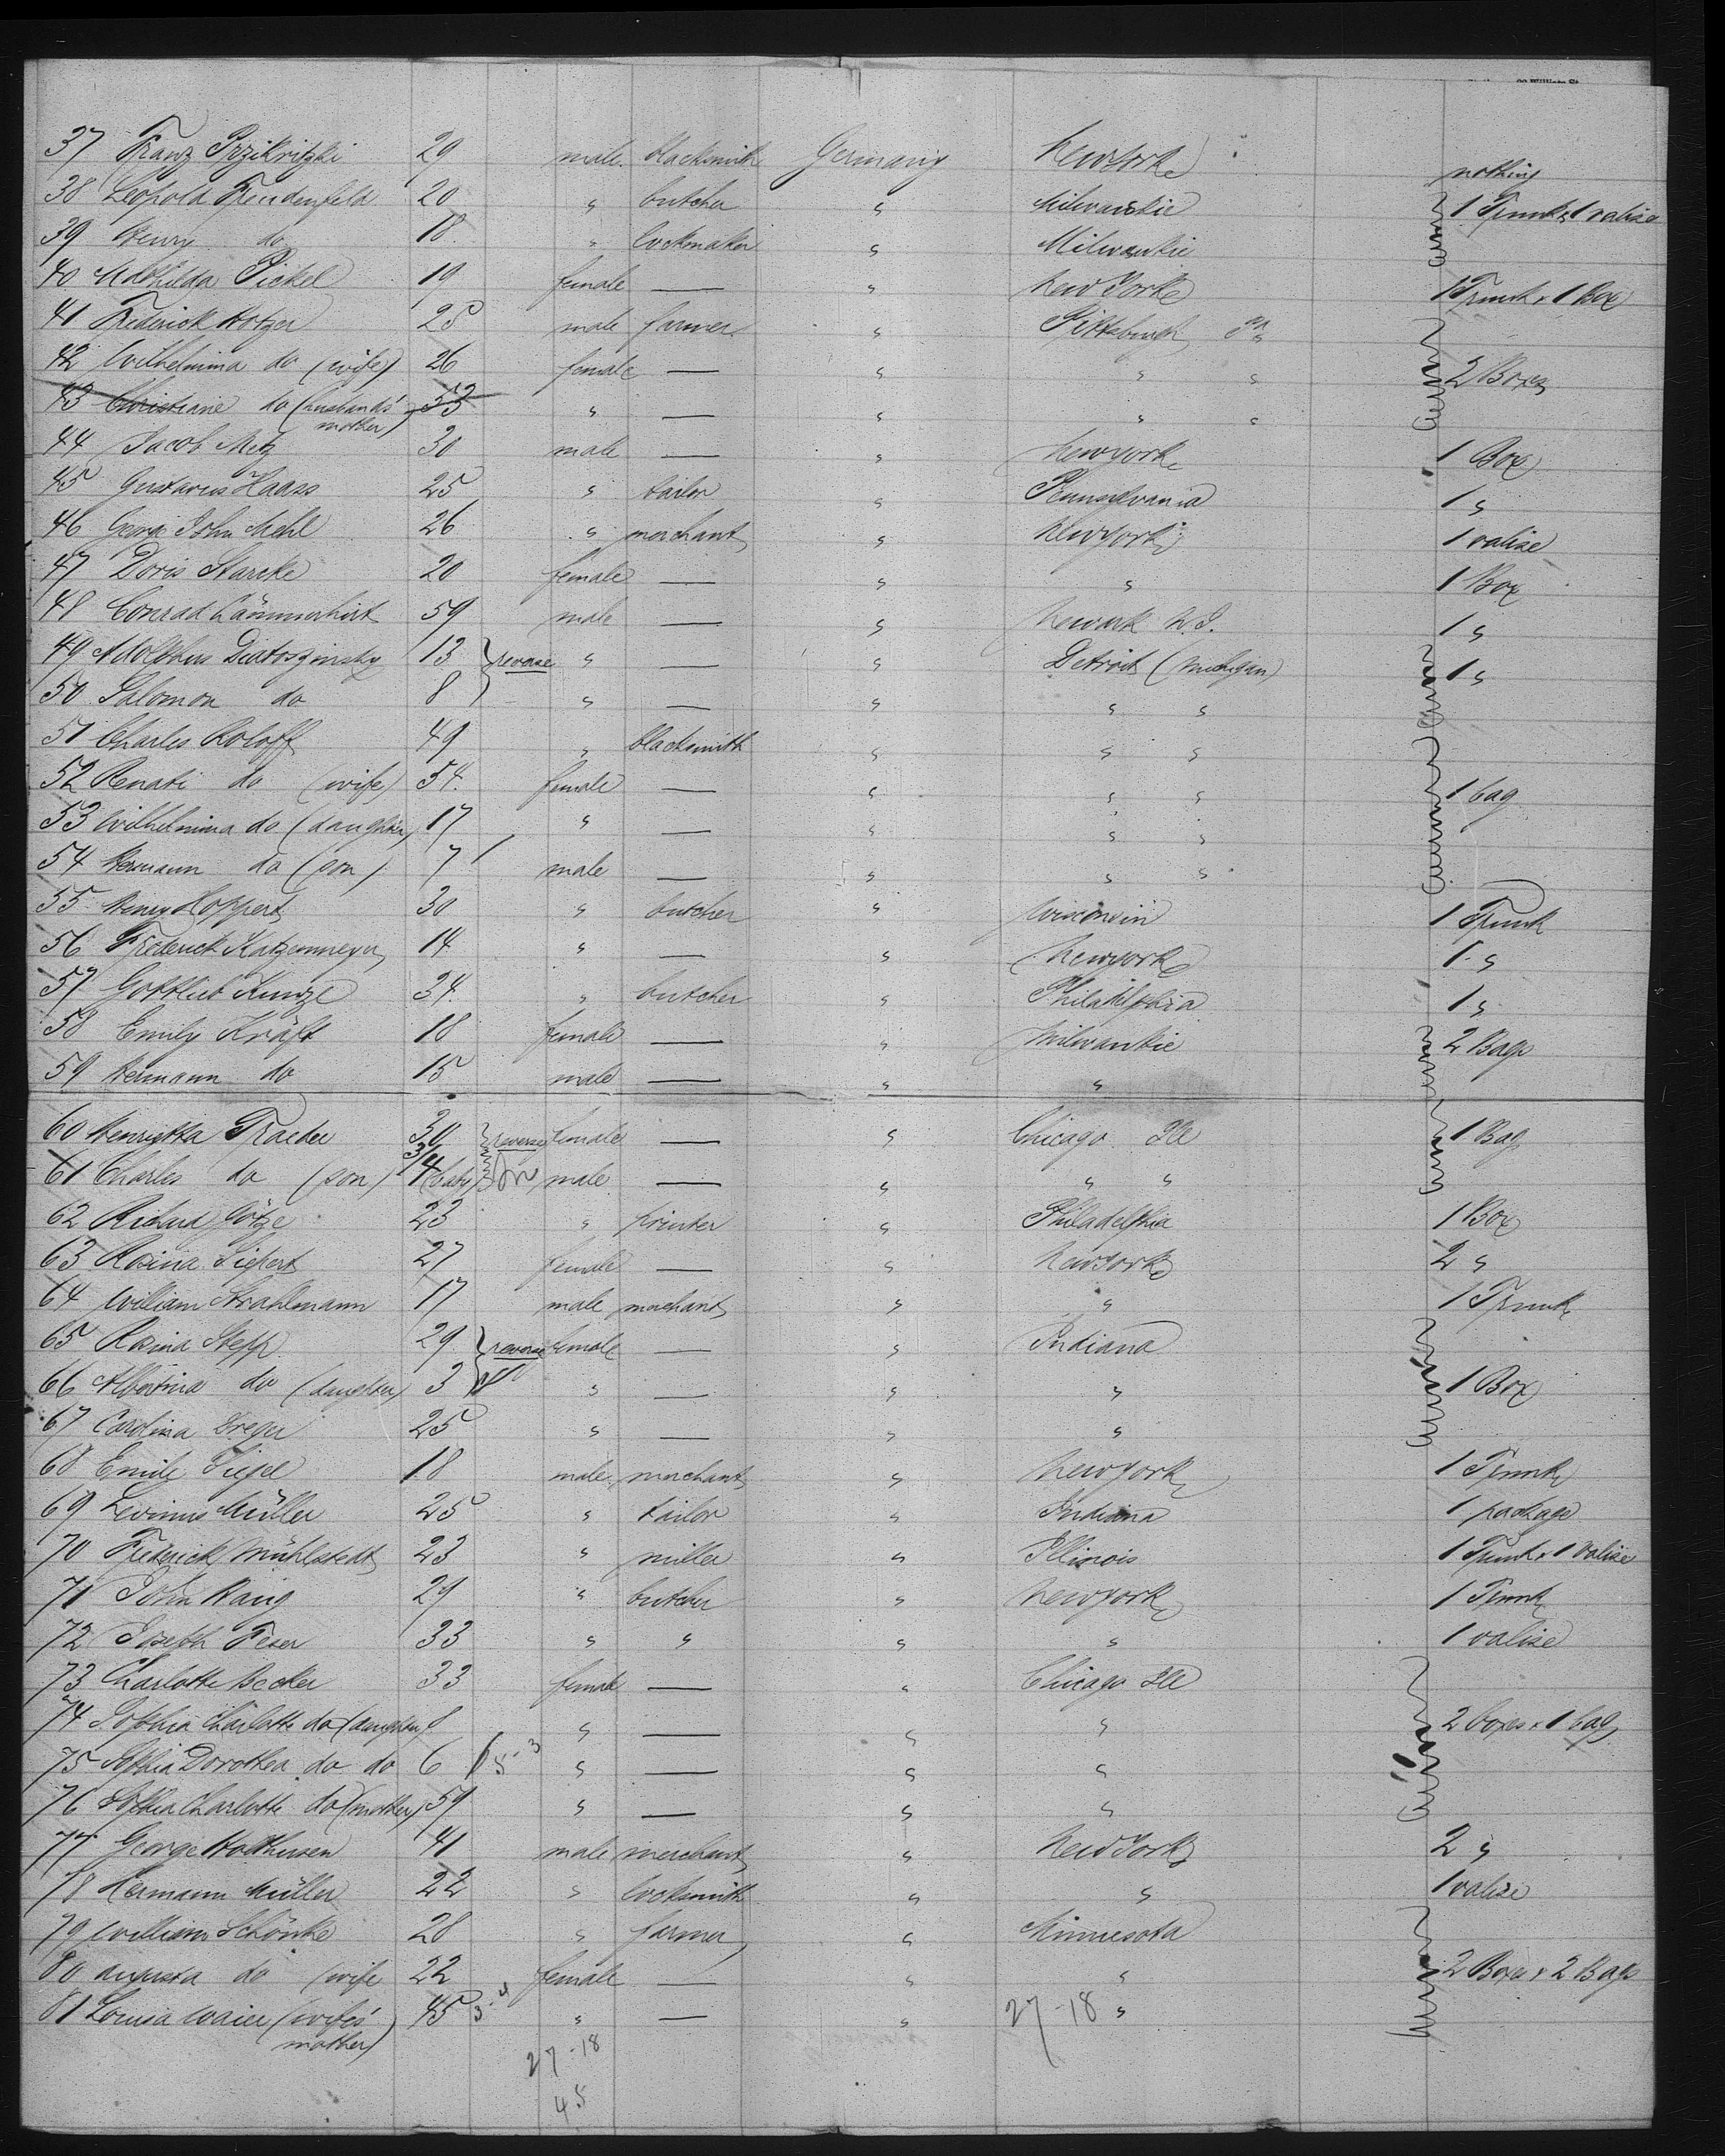 37 Franz Przikritzki 29 male blacksmith Germany New York nothing
38 Leopold Freudenfeld 20 " butcher " Milwaukie 1 Trunk & 1 valise
39 Henry do 18 " lockmaker " Milwaukie
40 Mathilda Pickel 19 female — " New York 1 Trunk & 1 Box
41 Frederick Hotzer 25 male farmer " Pittsburgh Pa
42 Wilhelmina do (wife) 26 female — " " " 2 Boxes
43 Christiane do (husband's mother) 53 " — " " "
44 Jacob Metz 30 male — " New york 1 Box
45 Gustavus Haass 25 " tailor " Pennsylvania 1 "
46 George John Mehl 26 " merchant " New york 1 valise
47 Doris Starcke 20 female — " " 1 Box
48 Conrad Lämmerhirt 59 male — " Newark N.J. 1 "
49 Adolphus Diatoszinsky 13 reverse " — " Detroit (Michigan) 1 "
50 Salomon do 8 " — " " "
51 Charles Roloff 49 " blacksmith " " "
52 Renati do (wife) 54 female — " " " 1 bag
53 Wilhelmina do (daughter) 17 " — " " "
54 Hermann do (son) 7 male — " " "
55 Henry Hoppert 30 " butcher " Wisconsin 1 Trunk
56 Frederick Katzenmeyer 14 " — " New york 1 "
57 Gottlieb Kunze 34 " butcher " Philadelphia 1 "
58 Emily Kräft 18 female — " Milwaukie 2 Bags
59 Hermann do 15 male — " "
60 Henrietta Traeder 30 reverse female — " Chicago Ill 1 Bag
61 Charles do (son) 3/4 (babe) male — " " "
62 Richard Götze 23 " printer " Philadelphia 1 Box
63 Rosina Siepert 27 female — " New York 2 "
64 William Strahlmann 17 male merchant " " 1 Trunk
65 Rosina Stepp 29 reverse female — " Indiana
66 Albertina do (daughter) 3 " — " " 1 Box
67 Carolina Dreger 25 " — " "
68 Emile Siegel 18 male merchant " New york 1 Trunk
69 Levinus Müller 25 " tailor " Indiana 1 package
70 Frederick Mühlstedt 23 " miller " Illinois 1 Trunk & 1 Valise
71 John Raug 29 " butcher " New york 1 Trunk
72 Joseph Feser 33 " " " " 1 valise
73 Charlotte Becker 33 female — " Chicago Ill
74 Sophia Charlotte do (daughter) 8 " — " " 2 boxes & 1 bag
75 Sophia Dorothea do do 6 5-3 " — " "
76 Sophia Charlotte do (mother) 59 " — " "
77 George Holthusen 41 male merchant " New York 2 "
78 Hermann Müller 22 " locksmith " " 1 valise
79 William Schönke 28 " farmer " Minnesota
80 Augusta do (wife 22 female — " " 2 Boxes & 2 Bags
81 Louisa Waier (wife's mother) 45 3-4 " — " 27-18 "
27-18
45